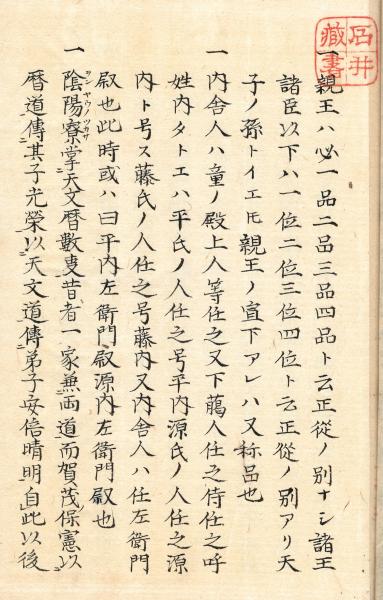 石井
藏書
一親王ハ必一品二品三品四品ト云正從ノ別ナシ諸王
諸臣以下ハ一位二位三位四位ト云正從ノ別アリ天
子ノ孫トイエ𪜈親王ノ宣下アレハ又称品也
一内舎人ハ童ノ殿上人等任之又下﨟人任之侍任之呼
姓内タトエハ平氏ノ人任之号平内源氏ノ人任之源
内ト号ス藤氏ノ人任之号藤内又内舎人ハ任左衛門
尉也此時或ハ曰平内左衛門尉源内左衛門尉也
一陰陽寮掌天文暦數叓昔者一家兼両道而賀茂保憲以
ヲンヤウノツカサ
暦道傳其子光榮以天文道傳弟子安倍晴明自此以後